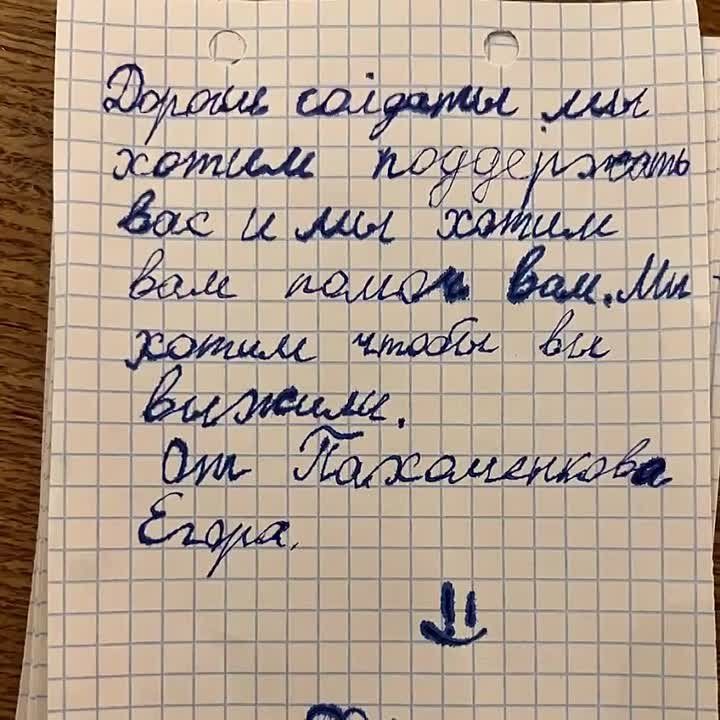 Дорогие солдаты мы
хотим поддержать
вас и мы хотим
вам помоч вам. Мы
хотим чтобы вы
выжили.
От Пахоменкова
Егора.